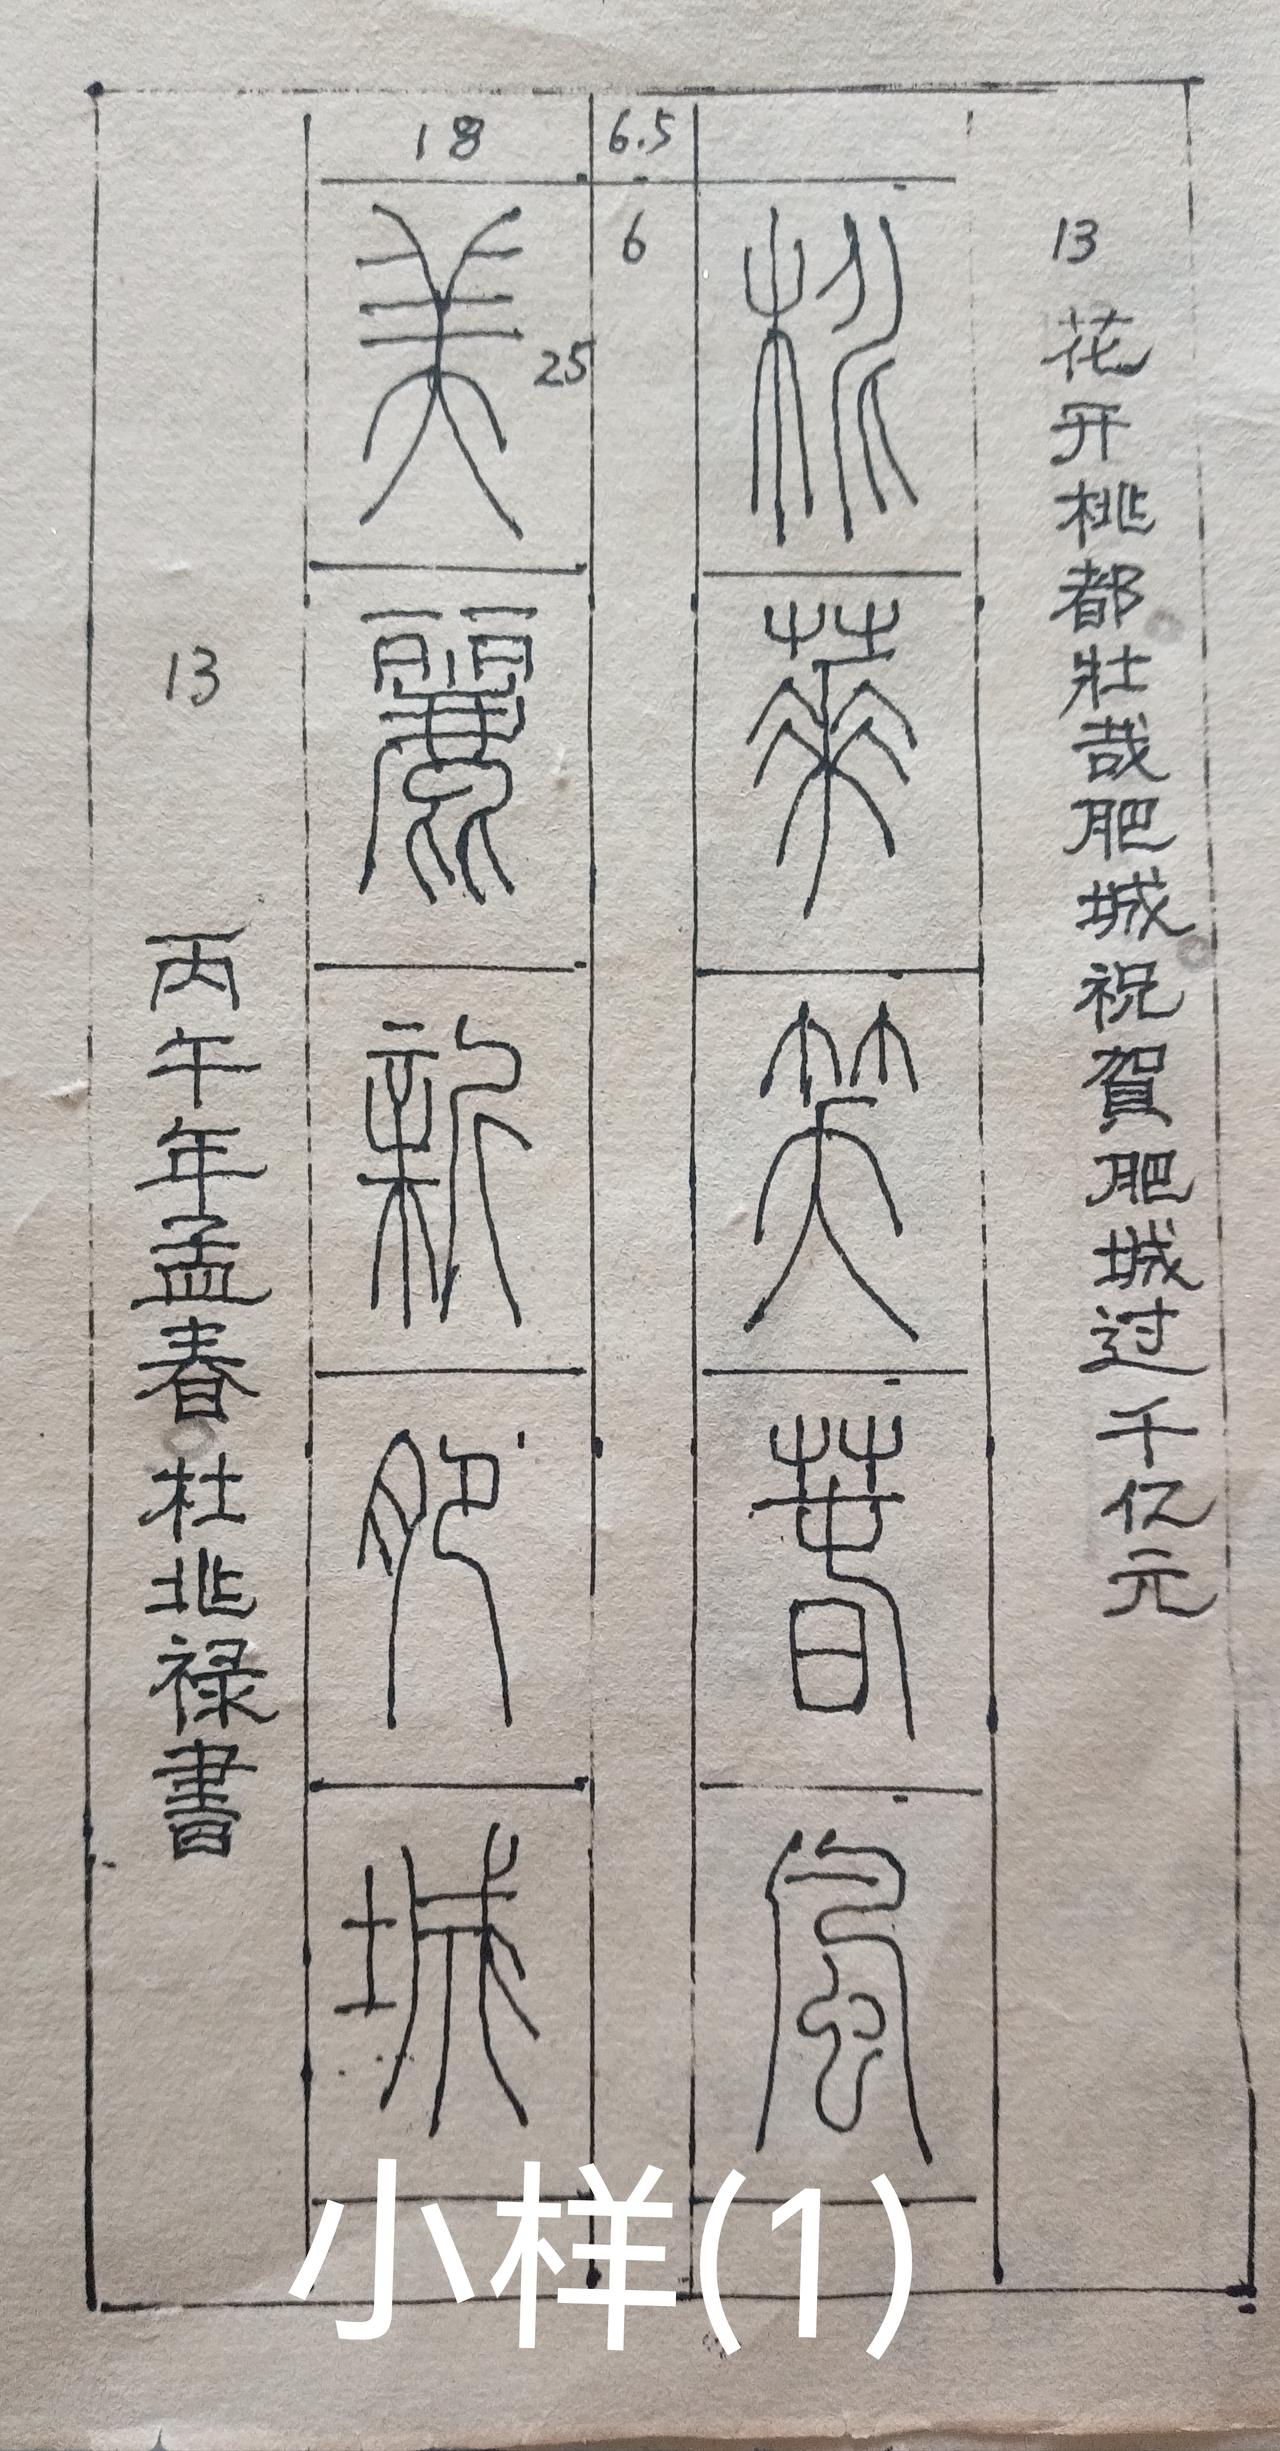 13
花开桃都壯哉肥城祝賀肥城过千亿元
桃華笑春風
6.5
6
18
25
美麗新肥城
13
丙午年孟春杜兆禄書
小样(1)